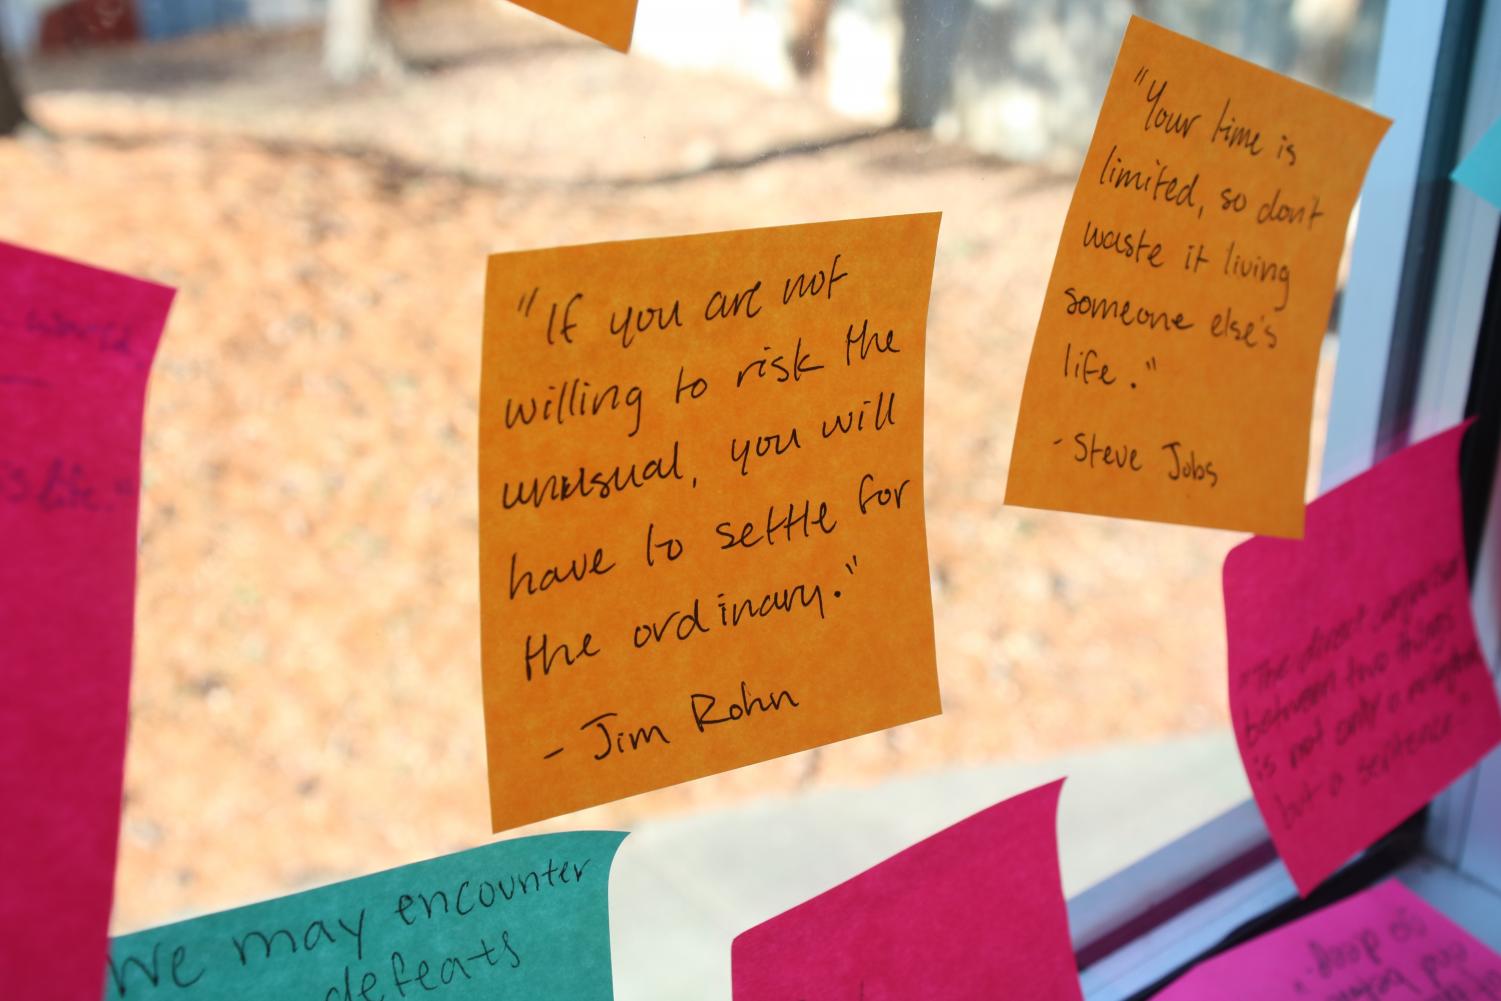 "If you are not
willing to risk the
unusual, you will
have to settle for
the ordinary."
- Jim Rohn
"Your time is
limited, so don't
waste it living
someone else's
life."
- Steve Jobs
world
life."
We may encounter
defeats
"The direct
between two things
is not only a
but a sentence"